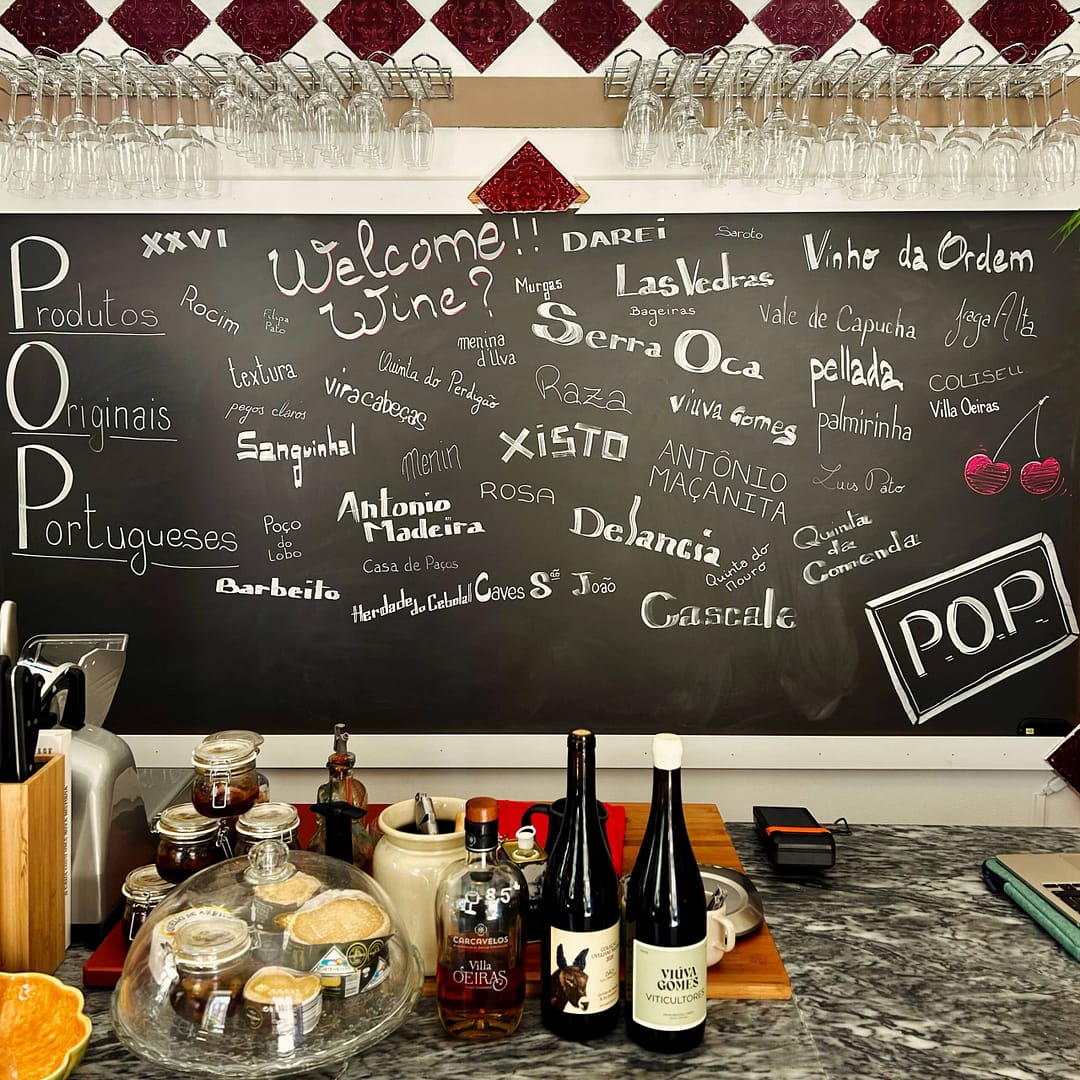 Produtos
Originais
Portugueses
XXVI
Welcome!!
Wine?
DAREI
Saroto
Vinho da Ordem
Rocim
Filipa
Pato
Murgas
LasVedras
Bageiras
Vale de Capucha
menina
d'Uva
Serra Oca
textura
Quinta do Perdigão
pellada
COLISEU
Villa Oeiras
viracabeças
Raza
Viuva Gomes
palmirinha
pegos claros
Sanguinhal
menin
XISTO
ANTÓNIO
MAÇANITA
Luis Pato
ROSA
Antonio
Madeira
Poço
do
Lobo
Casa de Paços
Delancia
Quinta do
Mouro
Quinta
da
Comenda
Barbeito
Herdade do Cebolal
Caves S. João
Cascale
POP
8.5
CARCAVELOS
Villa
OEIRAS
DÃO
VIÚVA
GOMES
VITICULTORES